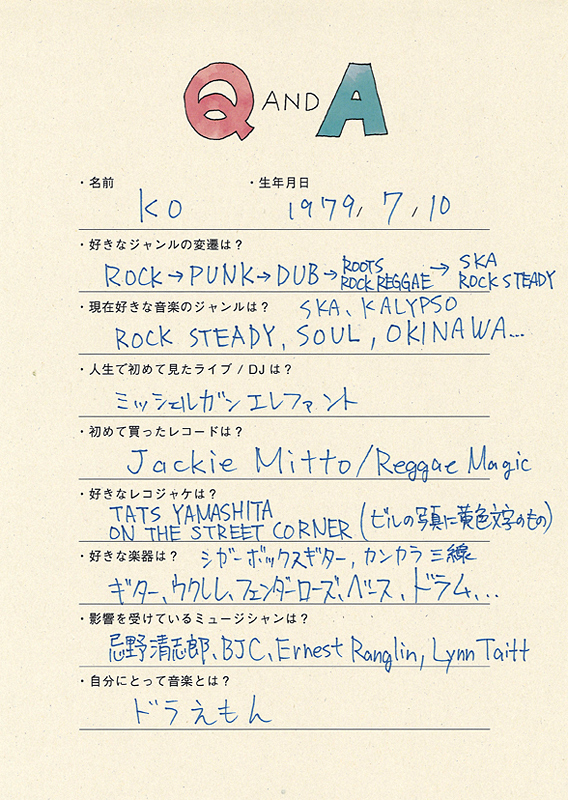 Q AND A
・名前 ・生年月日
KO 1979, 7, 10
・好きなジャンルの変遷は？
ROCK→PUNK→DUB→ROOTS ROCK REGGAE→SKA ROCK STEADY
・現在好きな音楽のジャンルは？ SKA、KALYPSO
ROCK STEADY, SOUL, OKINAWA...
・人生で初めて見たライブ / DJ は？
ミッシェルガンエレファント
・初めて買ったレコードは？
Jackie Mitto/Reggae Magic
・好きなレコジャケは？
TATS YAMASHITA
ON THE STREET CORNER (ビルの写真に黄色文字のもの)
・好きな楽器は？ シガーボックスギター, カンカラ三線
ギター、ウクレレ、フェンダーローズ、ベース、ドラム、...
・影響を受けているミュージシャンは？
忌野清志郎、BJC、Ernest Ranglin, Lynn Taitt
・自分にとって音楽とは？
ドラえもん